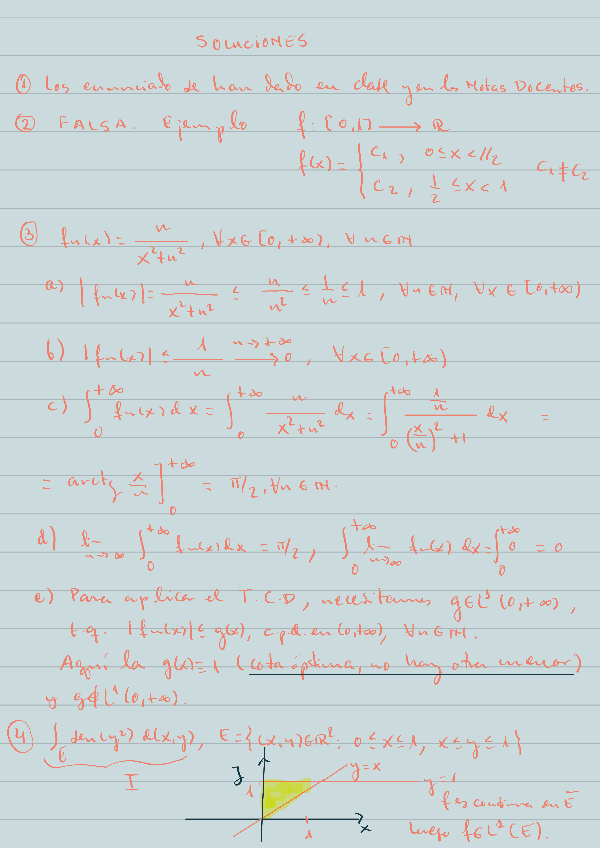 SOLUCIONES
① Los enunciado se han dado en clase y en las Notas Docentes.
② FALSA. Ejemplo f: [0,1] → ℝ
f(x) = { C₁, 0 ≤ x < 1/2
C₂, 1/2 ≤ x < 1 C₁ ≠ C₂
③ fn(x) = n/(x²+n²), ∀x ∈ [0,+∞), ∀n ∈ ℕ
a) |fn(x)| = n/(x²+n²) ≤ n/n² ≤ 1/n ≤ 1, ∀n ∈ ℕ, ∀x ∈ [0,+∞)
b) |fn(x)| ≤ 1/n →(n→+∞) 0, ∀x ∈ [0,+∞)
c) ∫₀^{+∞} fn(x) dx = ∫₀^{+∞} n/(x²+n²) dx = ∫₀^{+∞} (1/n)/((x/n)²+1) dx =
= arctg x/n ]₀^{+∞} = π/2, ∀n ∈ ℕ.
d) lim_{n→∞} ∫₀^{+∞} fn(x) dx = π/2, ∫₀^{+∞} lim_{n→∞} fn(x) dx = ∫₀^{+∞} 0 = 0
e) Para aplicar el T.C.D, necesitamos g∈L¹(0,+∞),
t.q. |fn(x)| ≤ g(x), c.p.d. en (0,+∞), ∀n ∈ ℕ.
Aquí la g(x) ≡ 1 (cota óptima, no hay otra menor)
y g∉L¹(0,+∞).
④ ∫_E sen(y²) d(x,y), E = {(x,y)∈ℝ²: 0 ≤ x ≤ 1, x ≤ y ≤ 1}
I
y
y=x
1
y=1
f es continua en Ē
x
1
luego f∈L¹(E).